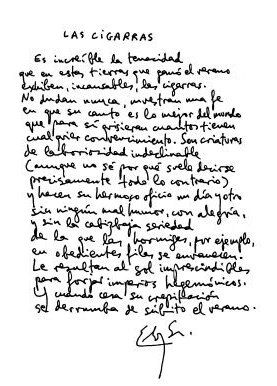 LAS CIGARRAS
Es increíble la tenacidad
que en estas tierras que ganó el verano
exhiben, incansables, las cigarras.
No dudan nunca, muestran una fe
en que su canto es lo mejor del mundo
que para sí quisieran cuantos tienen
cualquier convencimiento. Son criaturas
de laboriosidad indeclinable
(aunque no sé por qué suele decirse
precisamente todo lo contrario)
y hacen su hermoso oficio un día y otro
sin ningún mal humor, con alegría,
y sin la cabizbaja seriedad
de la que las hormigas, por ejemplo,
en obedientes filas se envanecen.
Le resultan al sol imprescindibles
para forjar imperios hegemónicos.
Y cuando cesa su crepitación
se derrumba de súbito el verano.